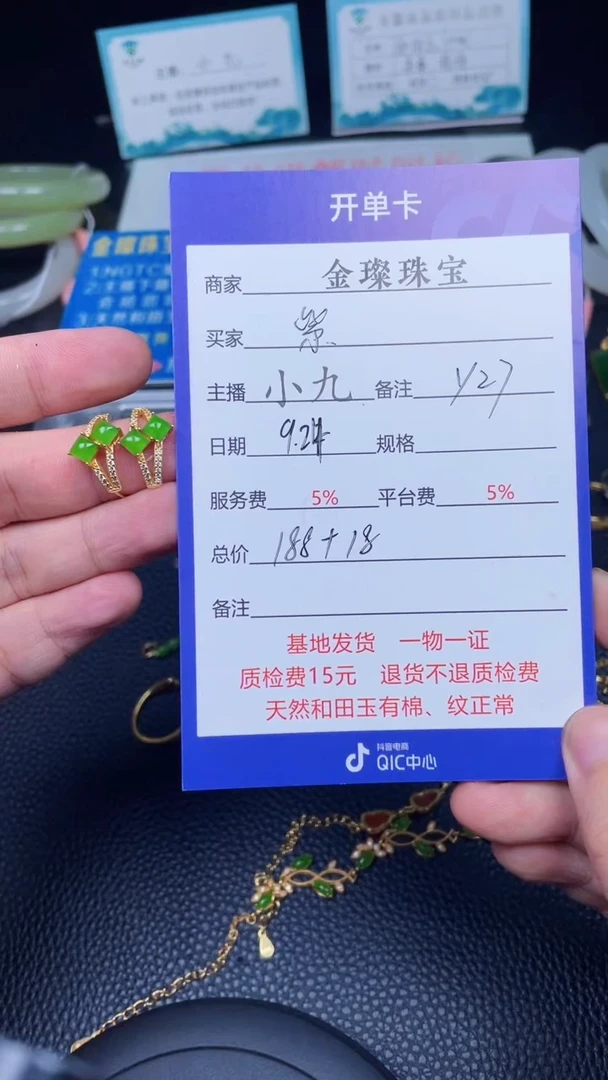 主播 小九
开单卡
商家 金璨珠宝
买家
主播 小九 备注 Y27
日期 9.24 规格
服务费 5% 平台费 5%
总价 188+18
备注
基地发货 一物一证
质检费15元 退货不退质检费
天然和田玉有棉、纹正常
抖音电商
QIC中心
金璨珠
1:NGTC
2:主播下